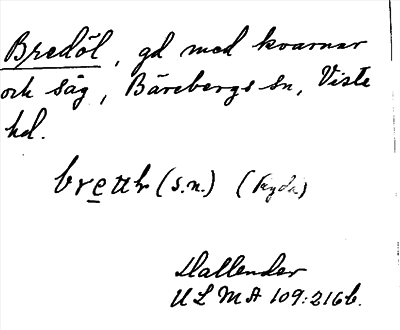 Bredöl, gd med kvarnar
och såg, Bärebergs sn, Viste
hd.
(s.n.)
Hallender
ULMA 109:216b.